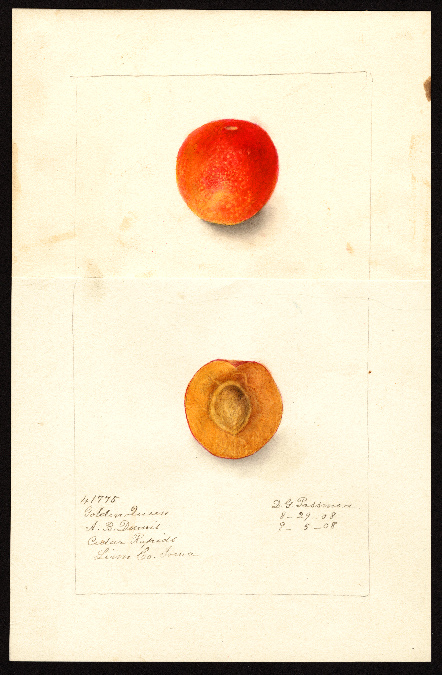 41775
Golden Queen
A. B. Dennis
Cedar Rapids
Linn Co. Iowa
D. G. Passmore
8-29-08
9-5-08